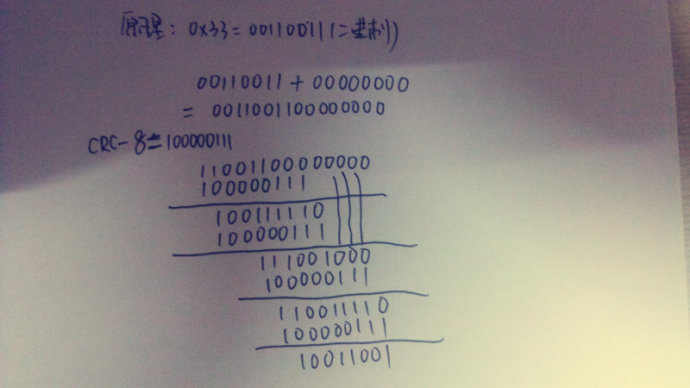 原理: 0x33=00110011(二进制)
00110011+00000000
=0011001100000000
CRC-8=100000111
11001100000000
100000111
100111110
100000111
111001000
100000111
110011110
100000111
10011001